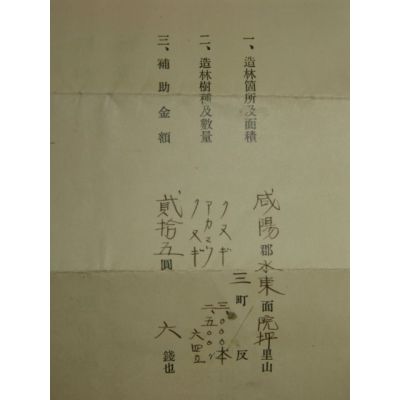 一、造林箇所及面積
咸陽郡水東面院坪里山
三町 反
二、造林樹種及數量
クヌギ 三、〇〇〇本
アカマツ 二、五〇〇〃
クヌギ 六四立
三、補助金額
貳拾五圓 六錢也